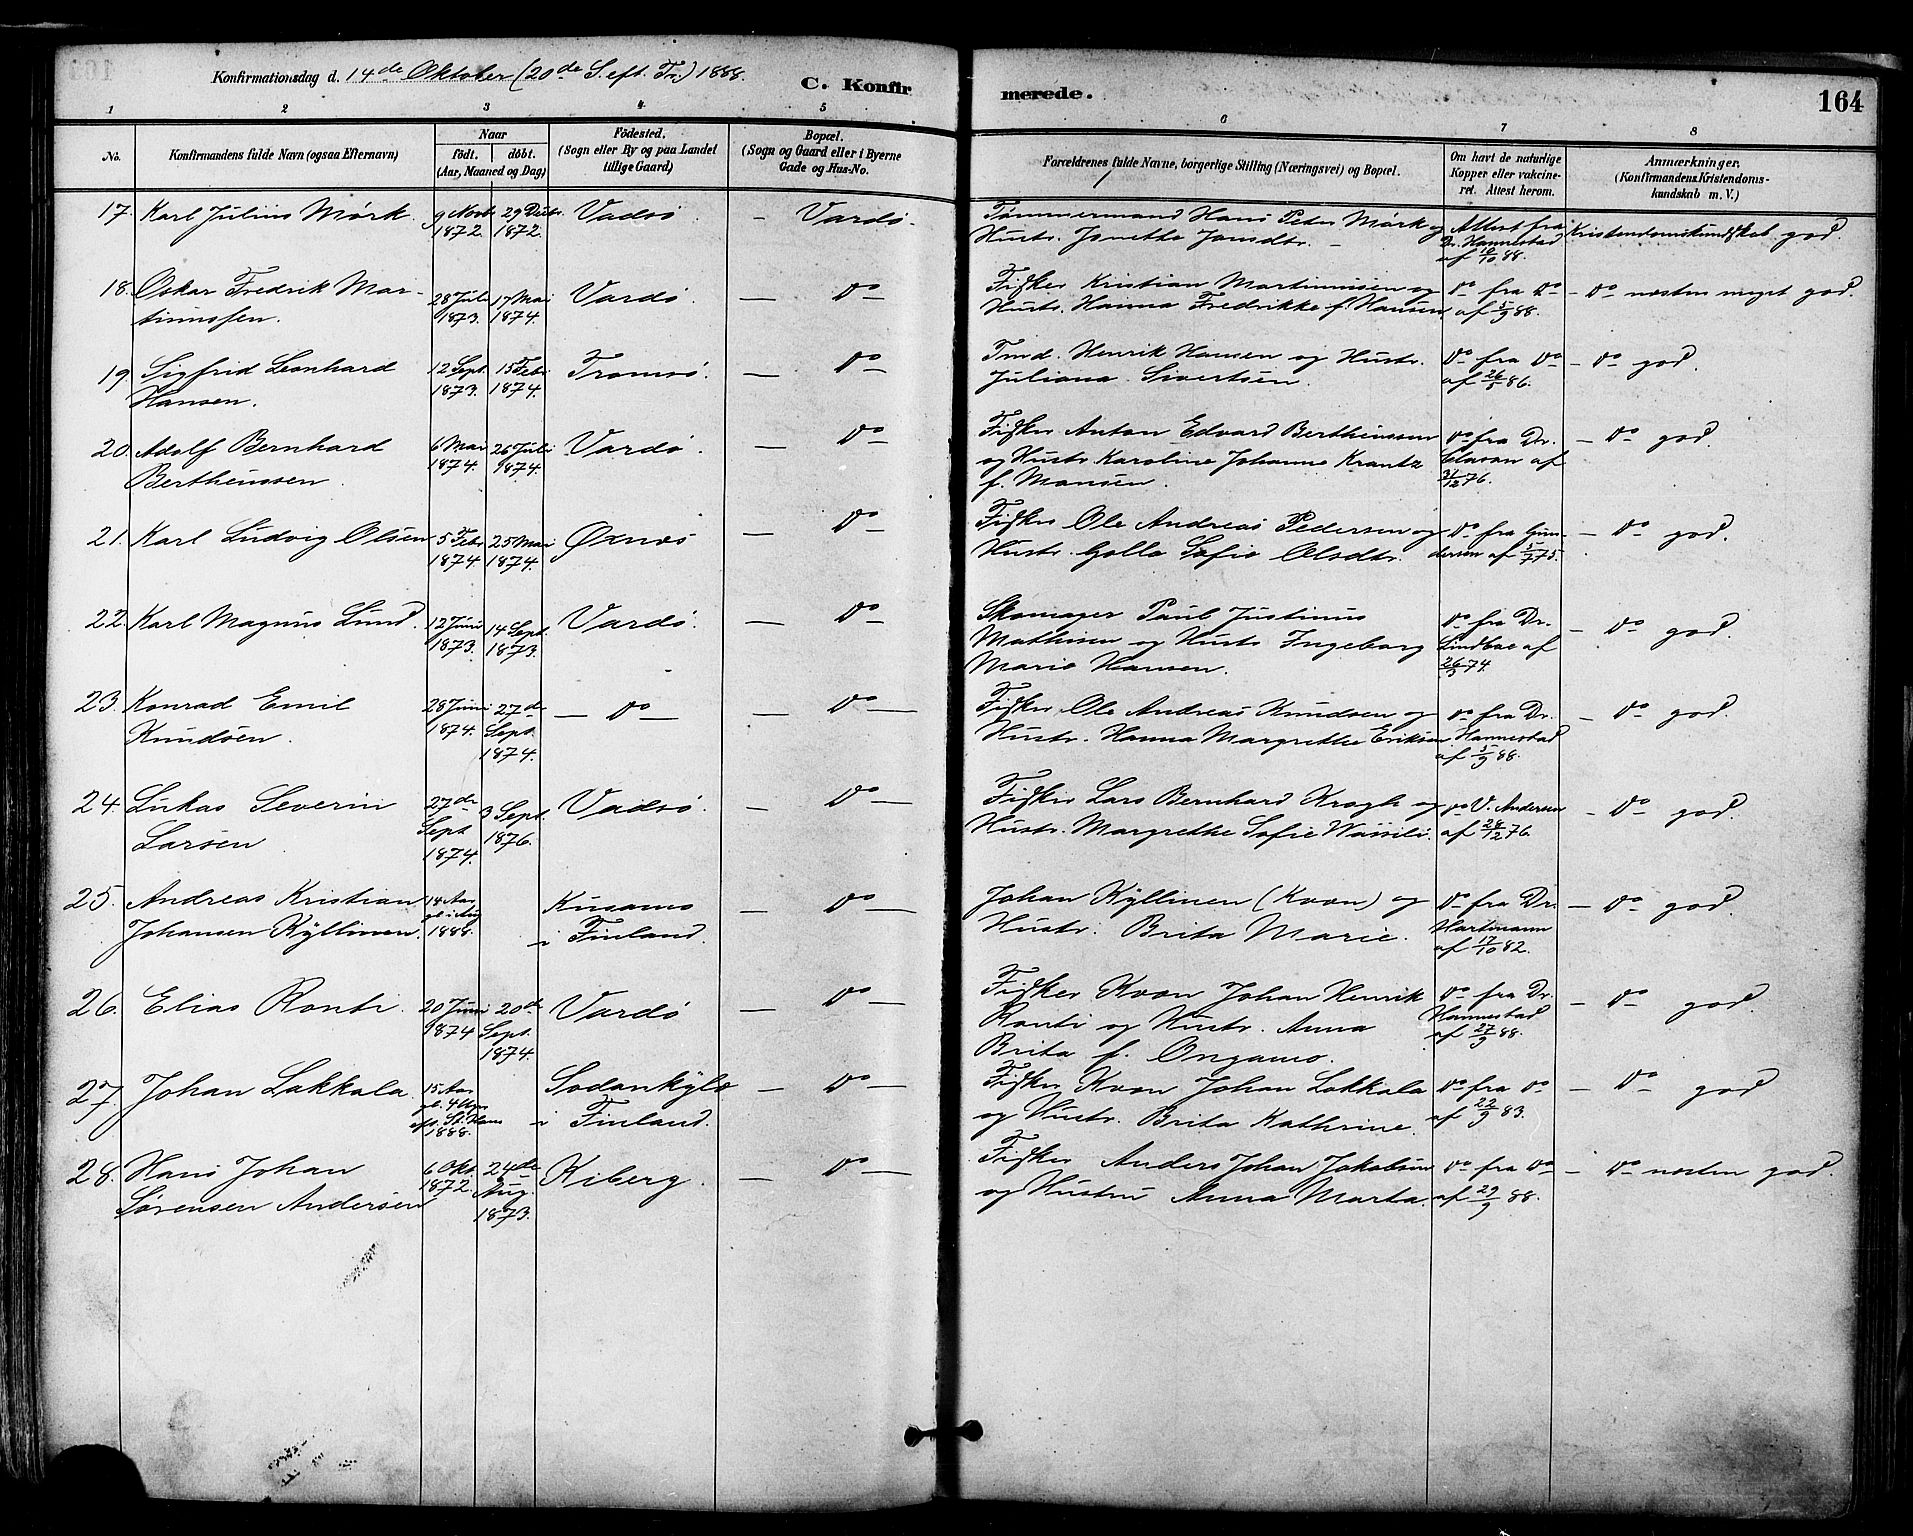 Konfirmationsdag d. 14de Oktober (20de S. eft. Tr.) 1888.
C. Konfirmerede.
164
1 2 3 4 5 6 7 8
No.
Konfirmandens fulde Navn (ogsaa Efternavn)
Naar
födt. döbt.
(Aar, Maaned og Dag)
Födested.
(Sogn eller By og paa Landet
tillige Gaard)
Bopæl.
(Sogn og Gaard eller i Byerne
Gade og Hus-No.
Forældrenes fulde Navne, borgerlige Stilling (Næringsvei) og Bopæl.
Om havt de naturlige
Kopper eller vakcine-
ret. Attest herom.
Anmærkninger.
(Konfirmandens Kristendoms-
kundskab m. V.)
17. Karl Julius Mörk. 9 Novb. 1872. 29 Decbr. 1872. Vadsö. – Vardö.
Tömmermand Hans Peter Mörk og
Hustr. Jonette Jonsdtr. –
Attest fra
Dr. Hannestad
af 10/10 88.
Kristendomskundskab god.
18. Oskar Fredrik Mar-
tinussen.
28 Juli 1873. 17 Mai 1874. Vardö. — Do
Fisker Kristian Martinussen og
Hustr. Hanna Fredrikke f. Hansen
Do fra Do
af 5/9 88.
– Do næsten meget god.
19. Sigfrid Leonhard
Hansen.
12 Sept. 1873. 15 Febr. 1874. Tromsö. — Do
Tmd. Henrik Hansen og Hustr.
Juliana Sivertsen.
Do fra Do
af 26/5 86.
– Do god.
20. Adolf Bernhard
Bertheussen.
6 Mai 1874. 26 Juli 1874. Vardö. — Do
Fisker Anton Edvard Bertheussen
og Hustr. Karoline Johanne Krantz
f. Monsen.
Do fra Dr.
Clason af
21/12 76.
– Do god.
21. Karl Ludvig Olsen 5 Febr. 1874 25 Mai 1874. Öxnes — Do
Fisker Ole Andreas Pedersen og
Hustr. Golla Sofie Olsdtr.
Do fra Gun-
dersen af 5/7 75.
– Do god.
22. Karl Magnus Lund. 12 Juni 1873. 14 Sept. 1873. Vardö. — Do
Skomager Paul Justinus
Mathisen og Hustr. Ingeborg
Marie Hansen.
Do fra Dr.
af
26/9 74
– Do god.
23. Konrad Emil
Knudsen.
28 Juni 1874. 27de Sept. 1874. — Do — — Do —
Fisker Ole Andreas Knudsen og
Hustr. Hanna Margrethe Eriksen
Do fra Dr.
Hannestad
af 5/9 88.
– Do god.
24. Lukas Severin
Larsen
27de Sept 1874. 3 Sept. 1876. Vadsö. — Do —
Fisker Lars Bernhard Krogh og
Hustr. Margrethe Sofie
Do V. Andersen
af 28/12 76.
– Do god.
25. Andreas Kristian
Johansen Kyllinen.
14 Aar
gl. i Aug
1888.
Kusamo
i Finland.
— Do —
Johan Kyllinen (Kvæn) og
Hustr. Brita Marie.
Do fra Dr.
Hartmann
af 17/10 82.
– Do god.
26. Elias Ronti. 20 Juni 1874 20de Sept. 1874. Vardö — Do —
Fisker Kvæn Johan Henrik
Ronti og Hustr. Anna
Brita f. Ongamo.
Do fra Dr.
Hannestad
af 27/9 88.
– Do god
27. Johan Lakkala. 15 Aar
gl. 4 Uger
eft. St. Hans
1888.
Sodankylæ
i Finland.
— Do —
Fisker Kvæn Johan Lakkala
og Hustr. Brita Kathrine.
Do fra Do
af 22/9 83.
– Do god
28. Hans Johan
Sörensen Andersen
6 Okt. 1872. 24de Aug. 1873. Kiberg. — Do —
Fisker Anders Johan Jakobsen
og Hustru Anna Marta.
Do fra Do
af 29/9 88.
– Do næsten god.